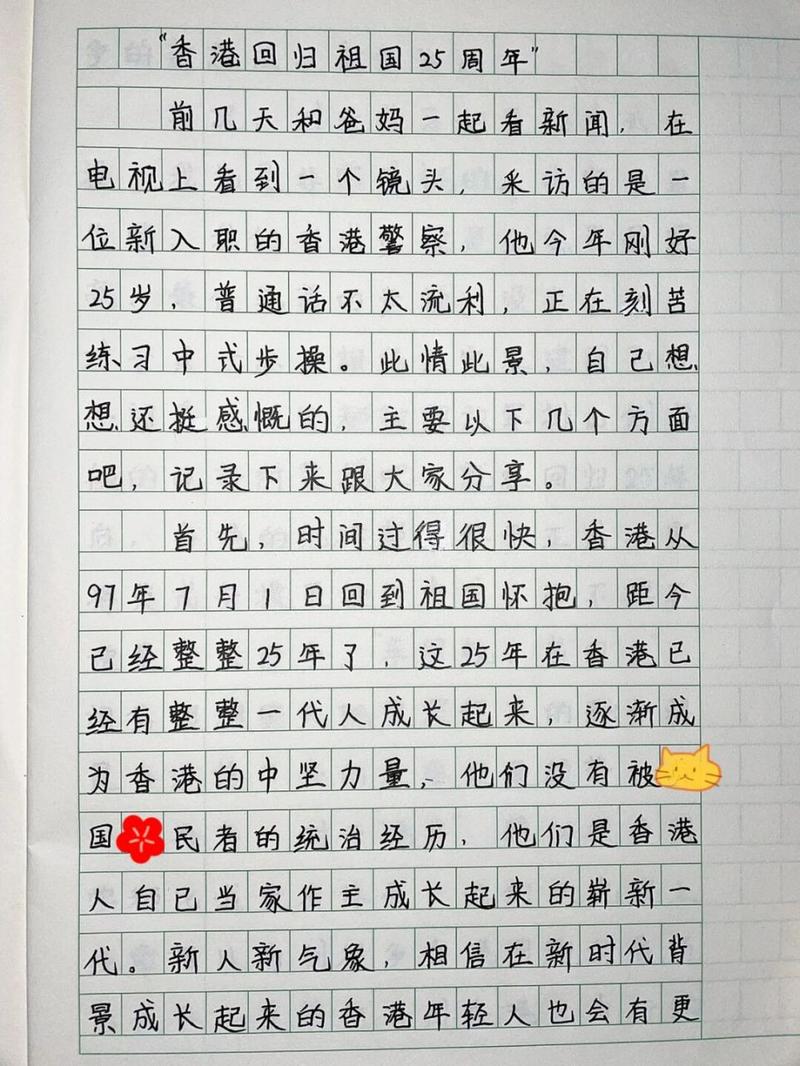 “香港回归祖国25周年”
前几天和爸妈一起看新闻，在
电视上看到一个镜头，采访的是一
位新入职的香港警察，他今年刚好
25岁，普通话不太流利，正在刻苦
练习中式步操。此情此景，自己想
想还挺感慨的，主要以下几个方面
吧，记录下来跟大家分享。
首先，时间过得很快，香港从
97年7月1日回到祖国怀抱，距今
已经整整25年了，这25年在香港已
经有整整一代人成长起来，逐渐成
为香港的中坚力量，他们没有被
国民者的统治经历，他们是香港
人自己当家作主成长起来的崭新一
代。新人新气象，相信在新时代背
景成长起来的香港年轻人也会有更